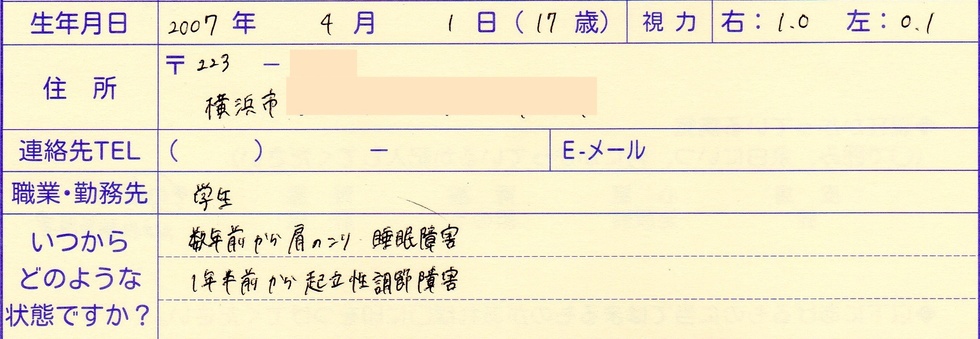 生年月日 2007年 4月 1日(17歳) 視力 右:1.0 左:0.1
住所 〒223 -
横浜市
連絡先TEL ( ) - E-メール
職業・勤務先 学生
いつから
どのような
状態ですか?
数年前から肩のこり 睡眠障害
1年半前から起立性調節障害